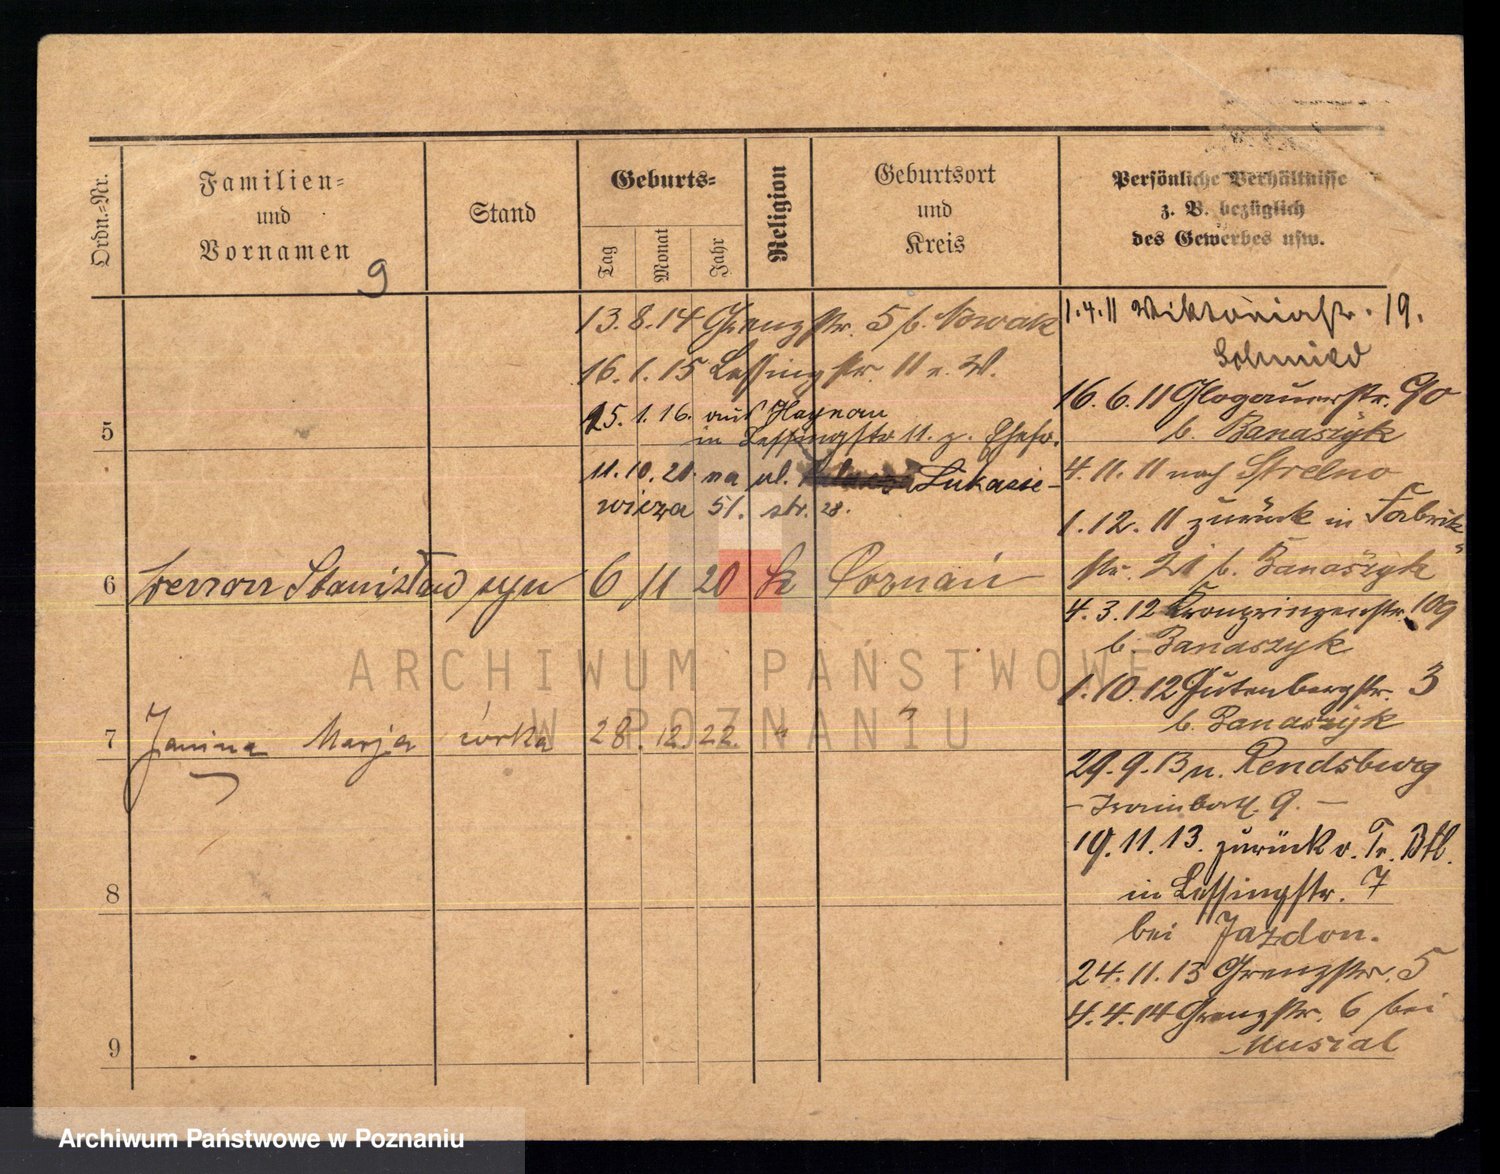 Ordn.-Nr.
Familien-
und
Vornamen
9
Stand
Geburts-
Tag
Monat
Jahr
Religion
Geburtsort
und
Kreis
Persönliche Verhältnisse
z. B. bezüglich
des Gewerbes usw.
13.8.14 Grenzstr. 5 b. Nowak
16.1.15 Lessingstr. 11 e. W.
25.1.16. aus Haynau
5 in Lessingstr 11. z. Ehefr.
11.10.21. na ul. Łukasie-
wicza 51. str. 28.
6 Stanisław syn 6 11 20 k Poznań
7 Janina Marja córka 28. 12. 22. "
8
9
1.4.11 Viktoriastr. 19.
Schmied
16.6.11 Glogauerstr. 90
b. Banaszyk
4.11.11 nach Strelno
1.12.11 zurück in Fabrik
str. 21 b. Banaszyk
4.3.12 Kronprinzenstr. 109
b. Banaszyk
1.10.12 Gutenbergstr. 3
b. Banaszyk
29.9.13 n. Rendsburg
- Trainbatl. 9. -
19.11.13. zurück v. Tr. Btl.
in Lessingstr. 7
bei Jazdon.
24.11.13 Grenzstr. 5
4.4.14 Grenzstr. 6 bei
Musial
ARCHIWUM PAŃSTWOWE
W POZNANIU
Archiwum Państwowe w Poznaniu